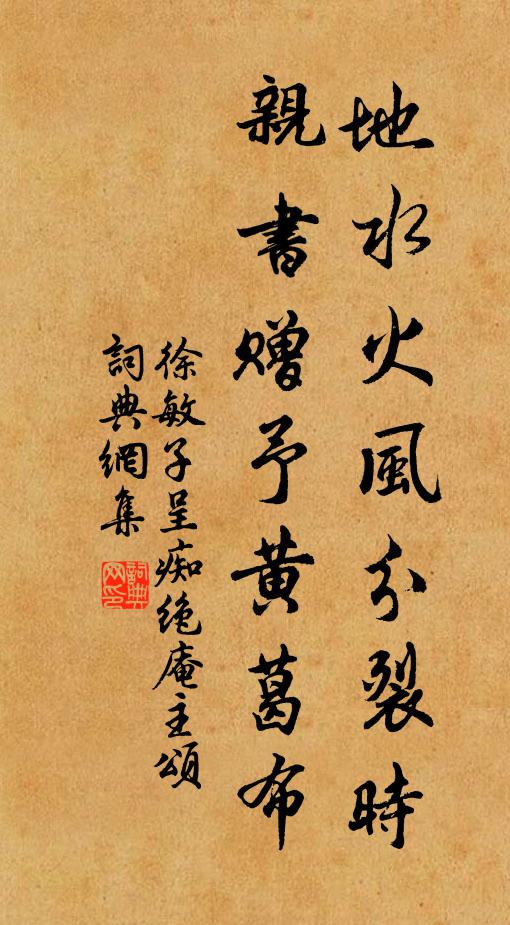 地水火風分裂時
親書赠予黄葛布
徐敏子呈痴绝庵主頌
詞典網集
詞典网印